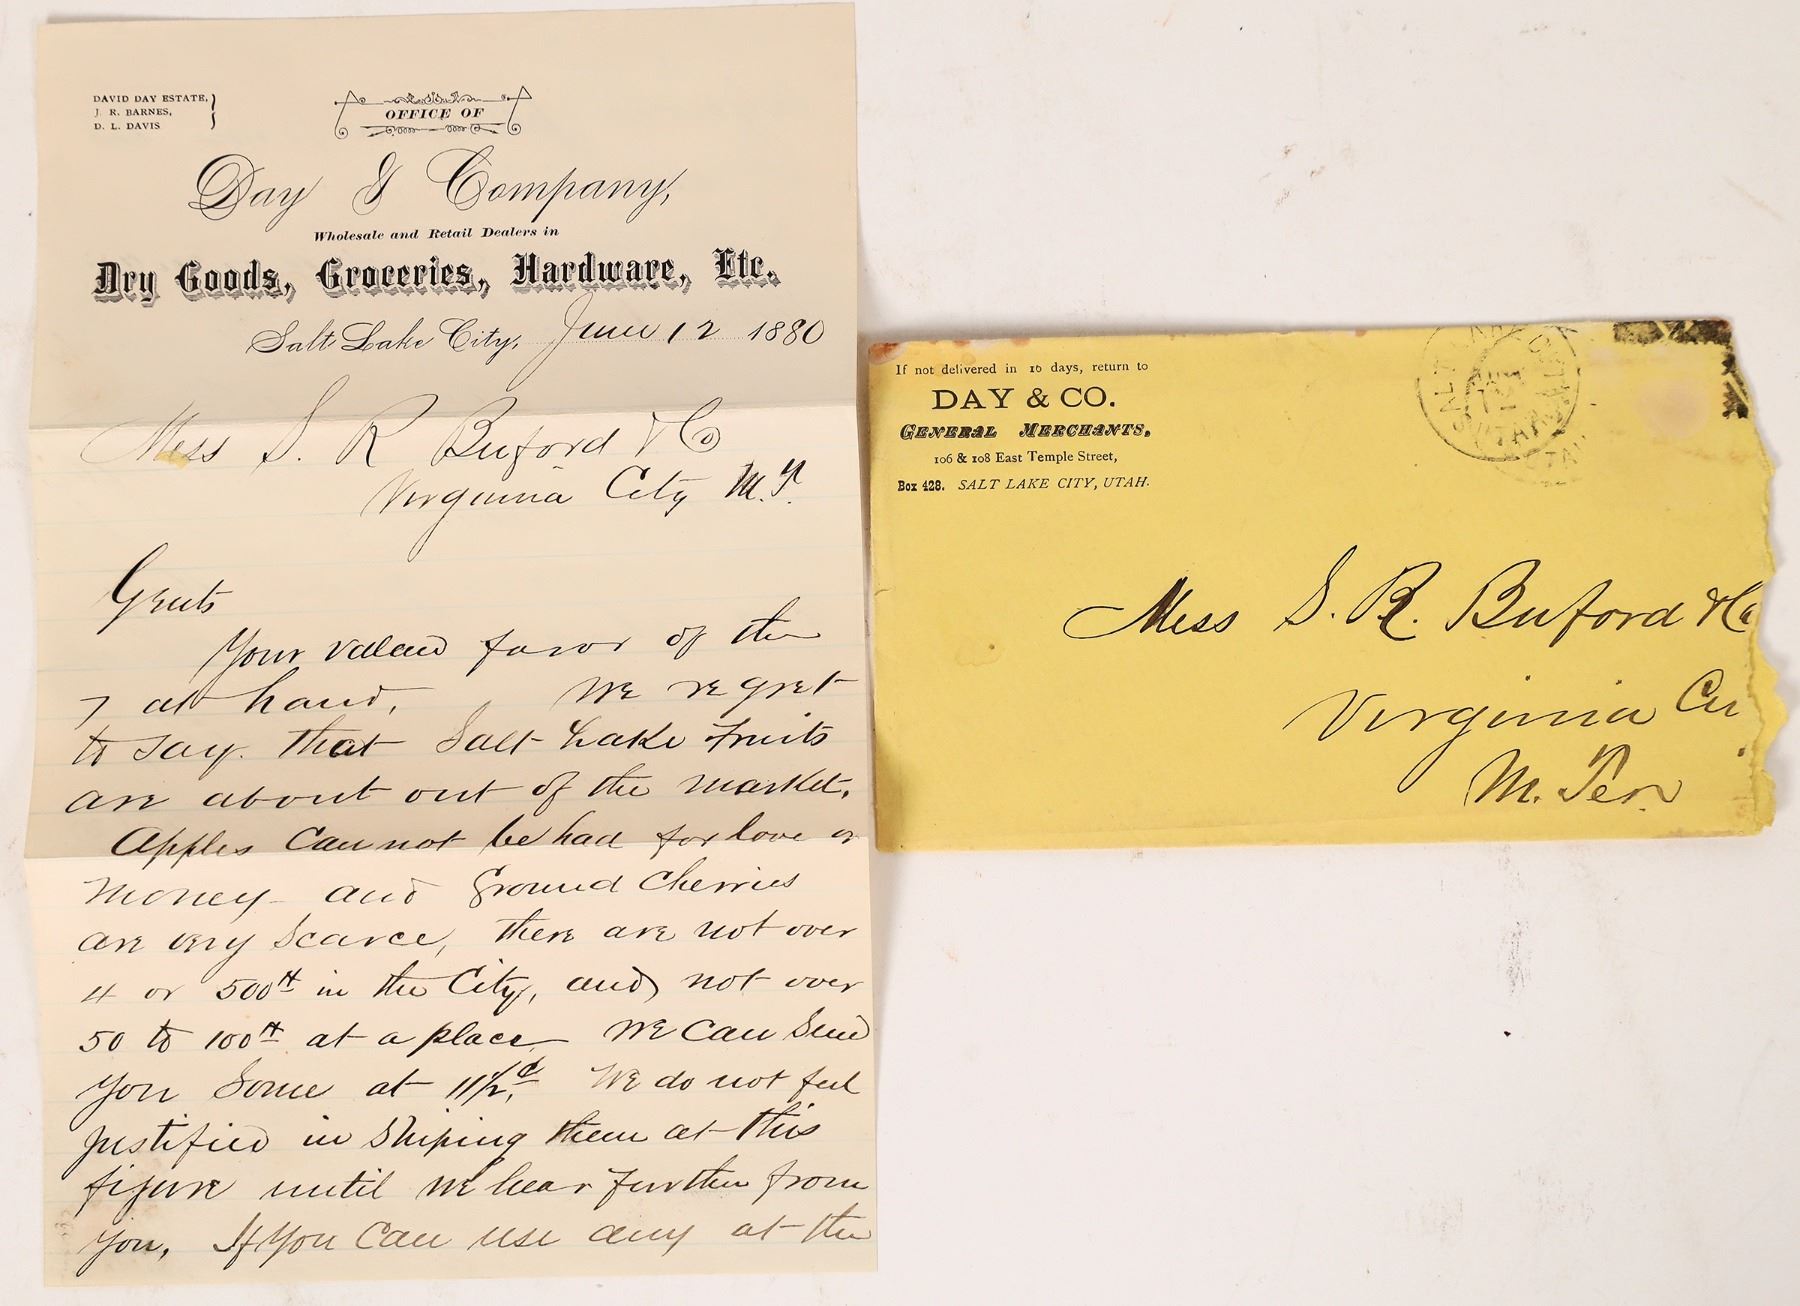 DAVID DAY ESTATE,
J. R. BARNES,
D. L. DAVIS
OFFICE OF
Day & Company,
Wholesale and Retail Dealers in
Dry Goods, Groceries, Hardware, Etc.
Salt Lake City, June 12 1880
Mess S. R Buford & Co
Virginia City M.T.
Gents
Your valued favor of the
7 at hand, We regret
to say. that Salt Lake Fruits
are about out of the market.
Apples Can not be had for love or
money - and Ground Cherries
are very Scarce, there are not over
4 or 500# in the City, and not over
50 to 100# at a place We Can Send
you Some at 11½¢. We do not feel
justified in Shiping them at this
figure until we hear further from
you, If you Can use any at the
If not delivered in 10 days, return to
DAY & CO.
GENERAL MERCHANTS,
106 & 108 East Temple Street,
Box 428. SALT LAKE CITY, UTAH.
SALT LAKE CITY
UTAH
Mess S. R. Buford & Co
Virginia Ci
M. Ter.